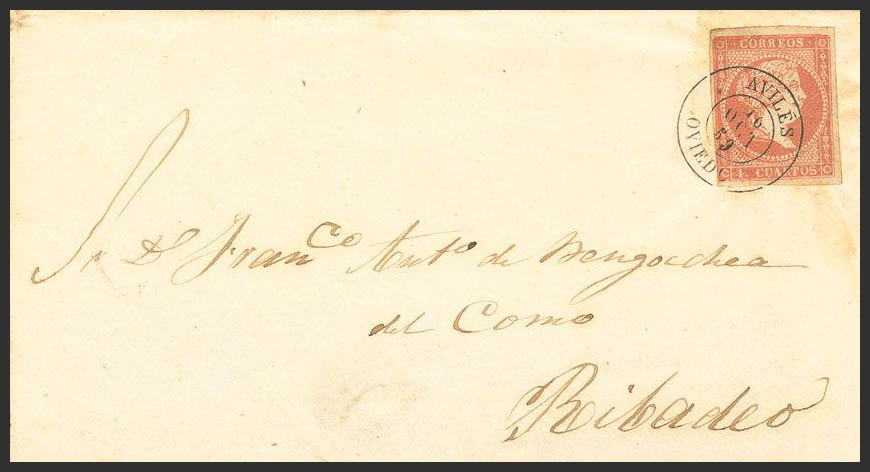 CORREOS
4 CUARTOS
AVILÉS
16
OCT
59
OVIEDO
Sr. Dn. Franco. Anto. de Bengoechea
del Como
Ribadeo